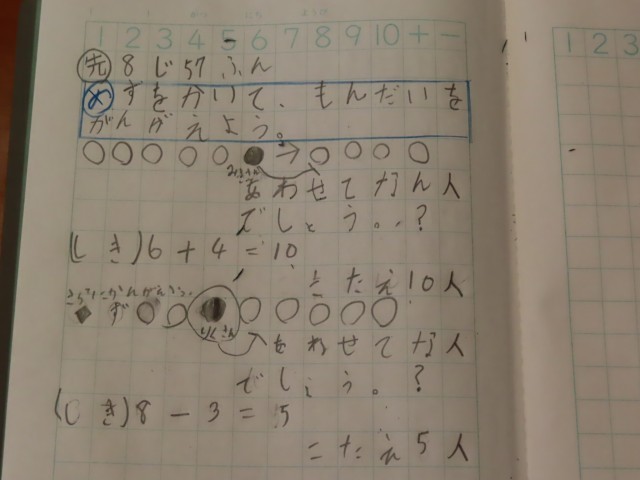 1 2 3 4 5 6 7 8 9 10 + −
先 8じ57ふん
め ずをかいて、もんだいを
かんがえよう。
あわせてなん人
でしょう。?
(しき)6+4=10
こたえ10人
ず
りくさん
をわせてな人
でしょう。?
(しき)8−3=5
こたえ5人
1 2 3